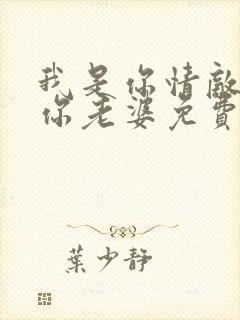 我是你情敵
你老婆免費
葉少靜